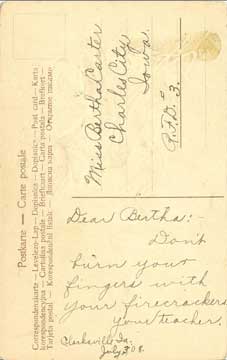 Postkarte — Carte postale
Correspondenzkarte — Levelezo-Lap — Dopisnice — Post card — Karta
Korespondencyjna — Cartolina postale — Briefkaart — Brefkort
Tarjeta postal
Miss Bertha Carter
Charles City
Iowa.
R.F.D. 3.
Dear Bertha:-
Don't
burn your
fingers with
your firecrackers
Your teacher.
Clarksville Ia.
July 08.